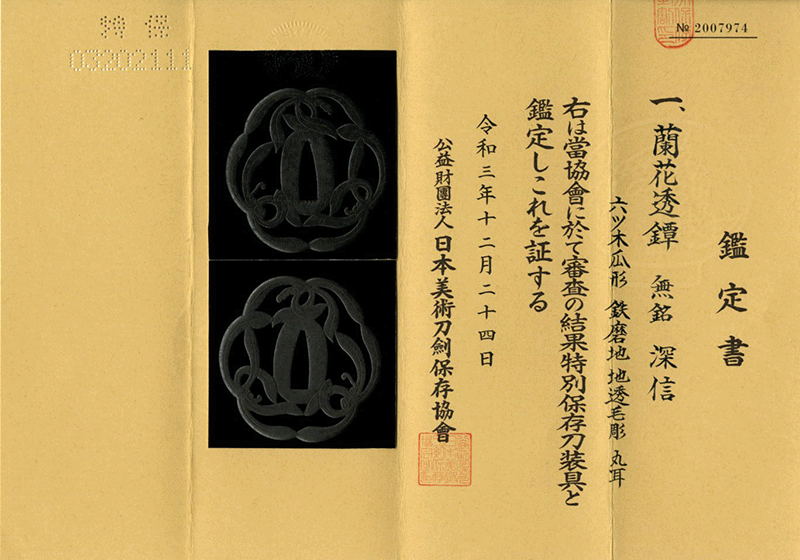 № 2007974
鑑定書
一、蘭花透鐔　無銘　深信
六ツ木瓜形　鉄磨地　地透毛彫　丸耳
右は當協會に於て審査の結果特別保存刀装具と
鑑定しこれを証する
令和三年十二月二十四日
公益財團法人 日本美術刀劍保存協會
特保
03202111